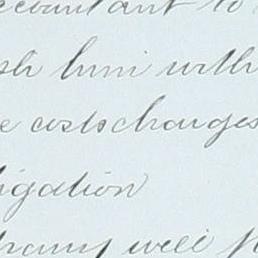 ccountant to
sh him with
e costs charges
igation
pany will p